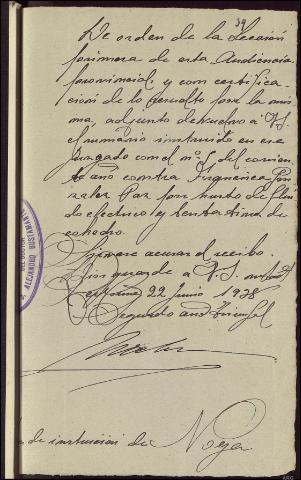 39
De orden de la Sección
primera de esta Audiencia
provincial, y con certifica-
ción de lo resuelto por la mis-
ma, adjunto devuelvo a V.S.
el sumario instruido en ese
Juzgado con el nº 5 del corrien-
te año contra Francisca Gon-
zalez Paz por hurto de flui-
do eléctrico y tentativa de
cohecho.
Sírvase acusar el recibo.
Dios guarde a V.S. muchos
22 Junio 1938
Segundo año Triunfal
de instrucción de Noya
ALEJANDRO BUSTAMANTE